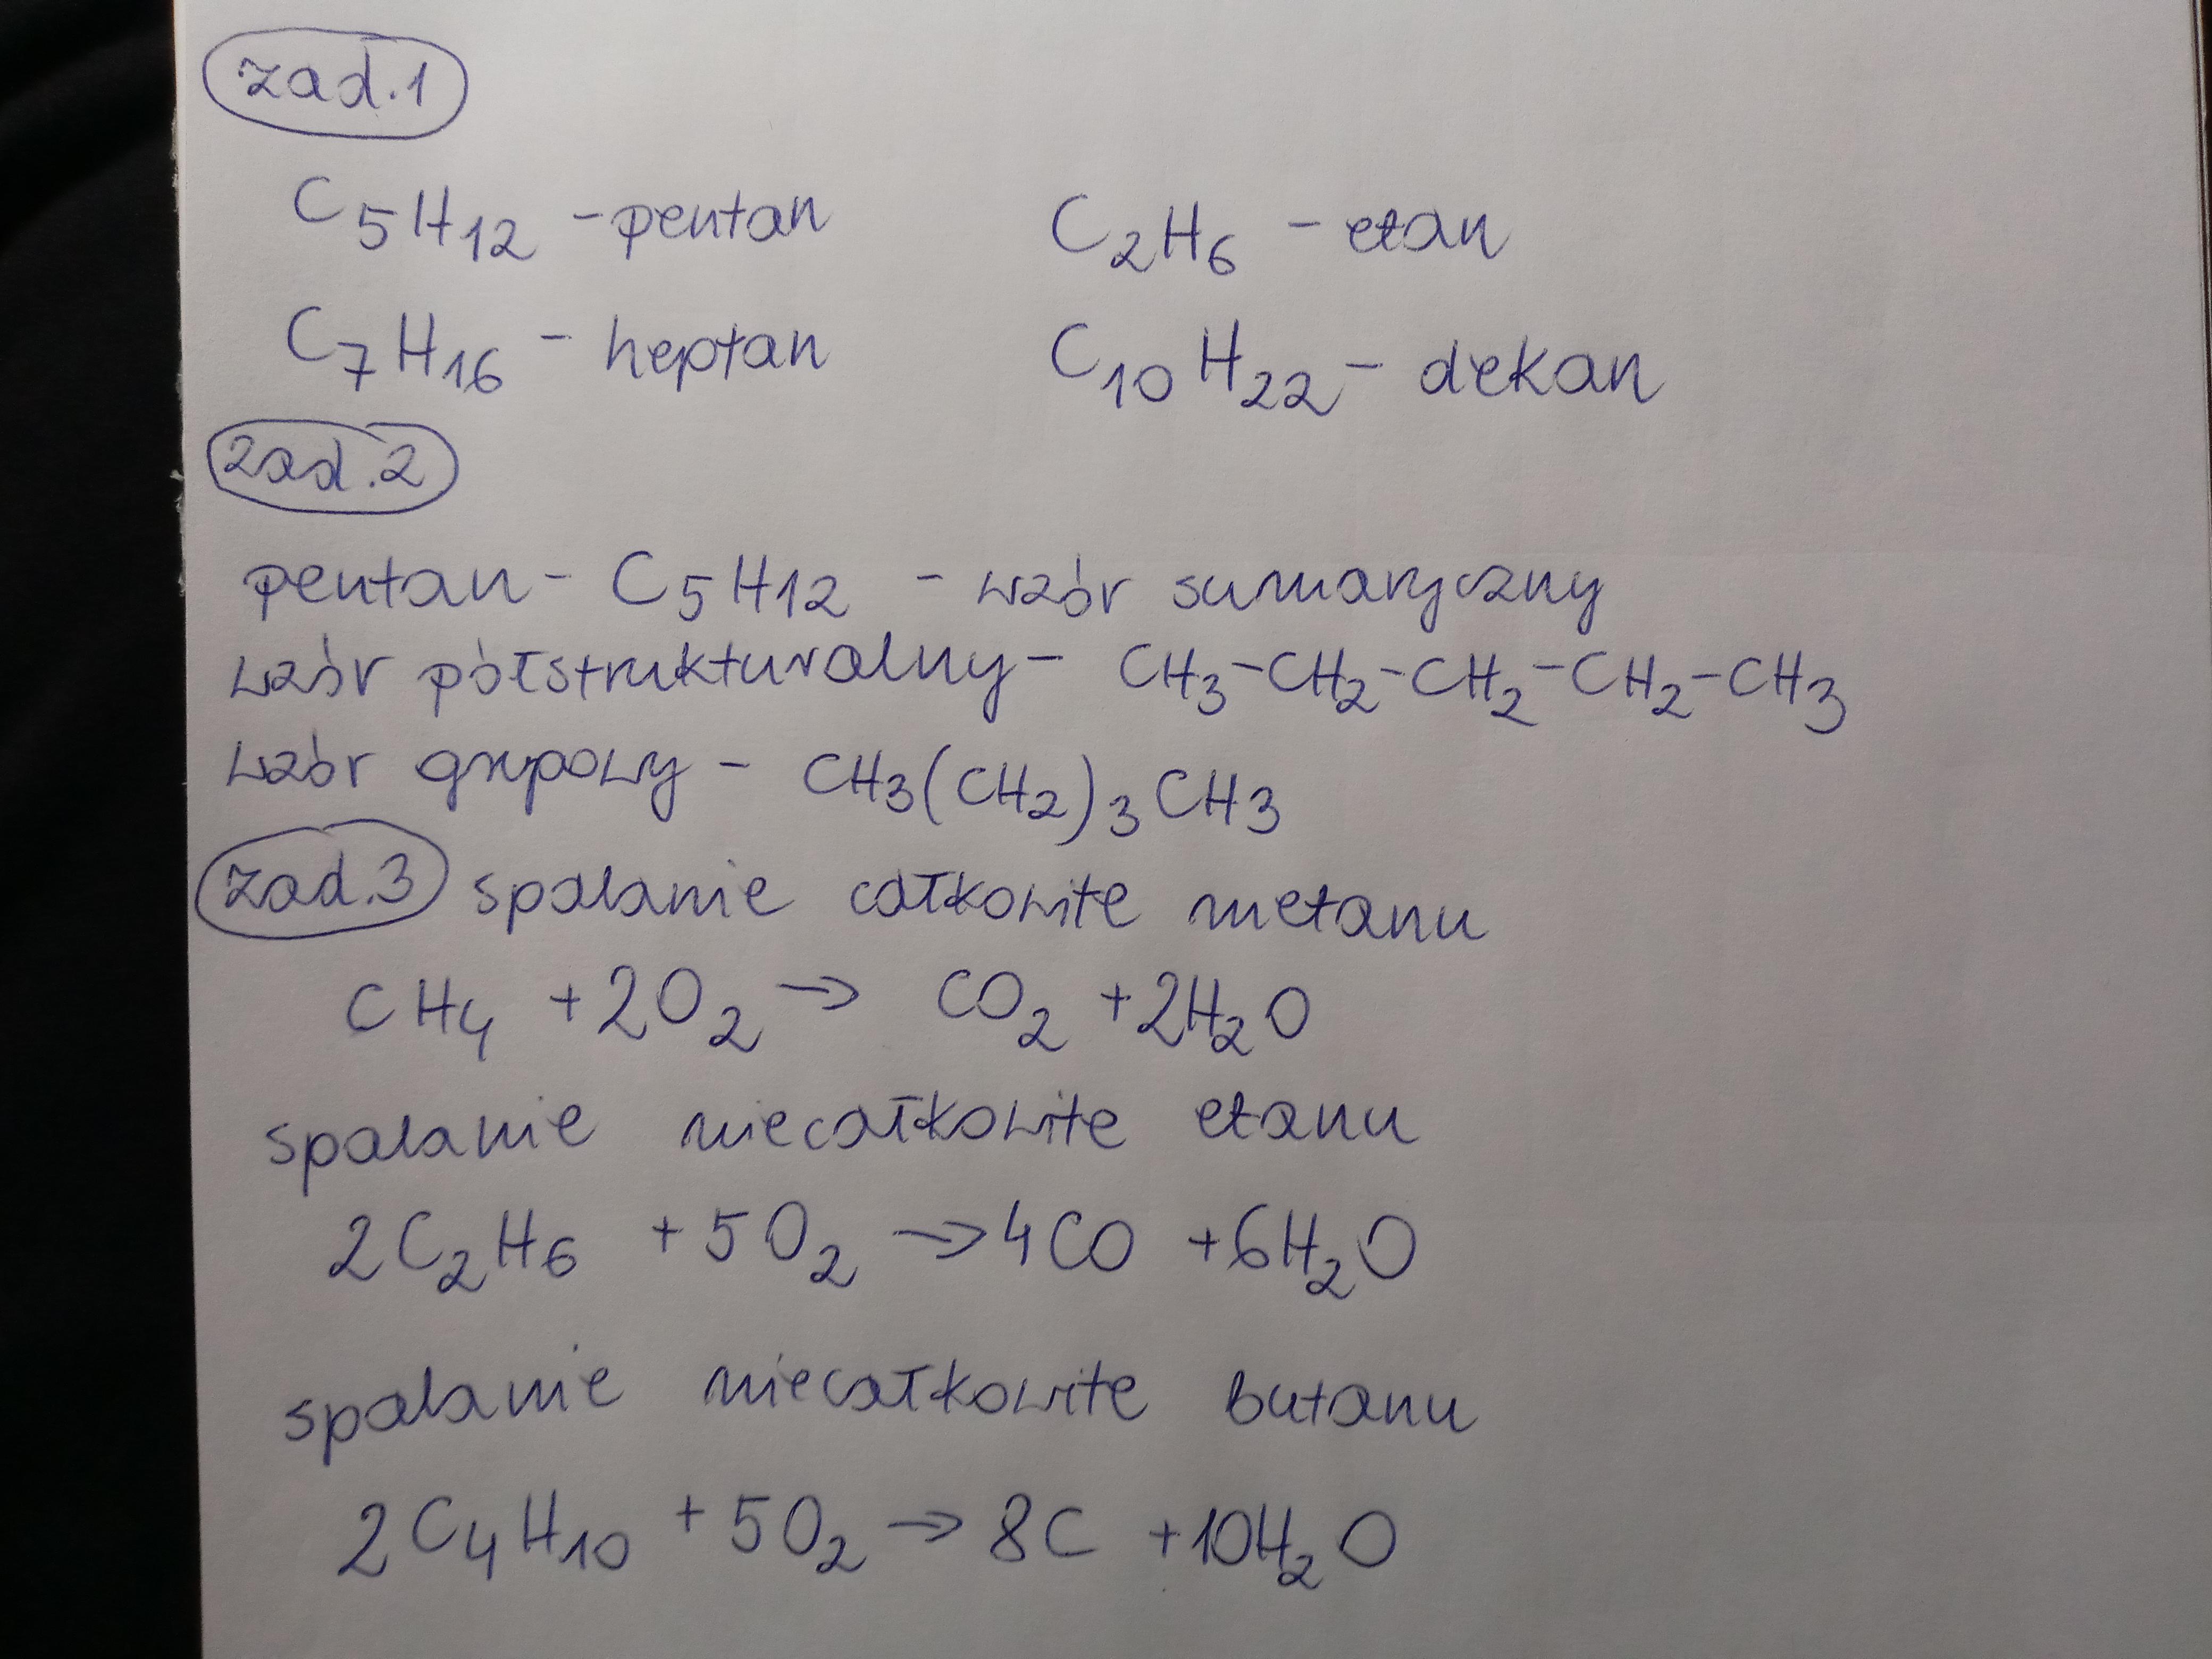 zad.1
C₅H₁₂ - pentan C₂H₆ - etan
C₇H₁₆ - heptan C₁₀H₂₂ - dekan
zad.2
pentan - C₅H₁₂ - wzór sumaryczny
wzór półstrukturalny - CH₃-CH₂-CH₂-CH₂-CH₃
wzór grupowy - CH₃(CH₂)₃CH₃
zad.3 spalanie całkowite metanu
CH₄ + 2O₂ → CO₂ + 2H₂O
spalanie niecałkowite etanu
2C₂H₆ + 5O₂ → 4CO + 6H₂O
spalanie niecałkowite butanu
2C₄H₁₀ + 5O₂ → 8C + 10H₂O